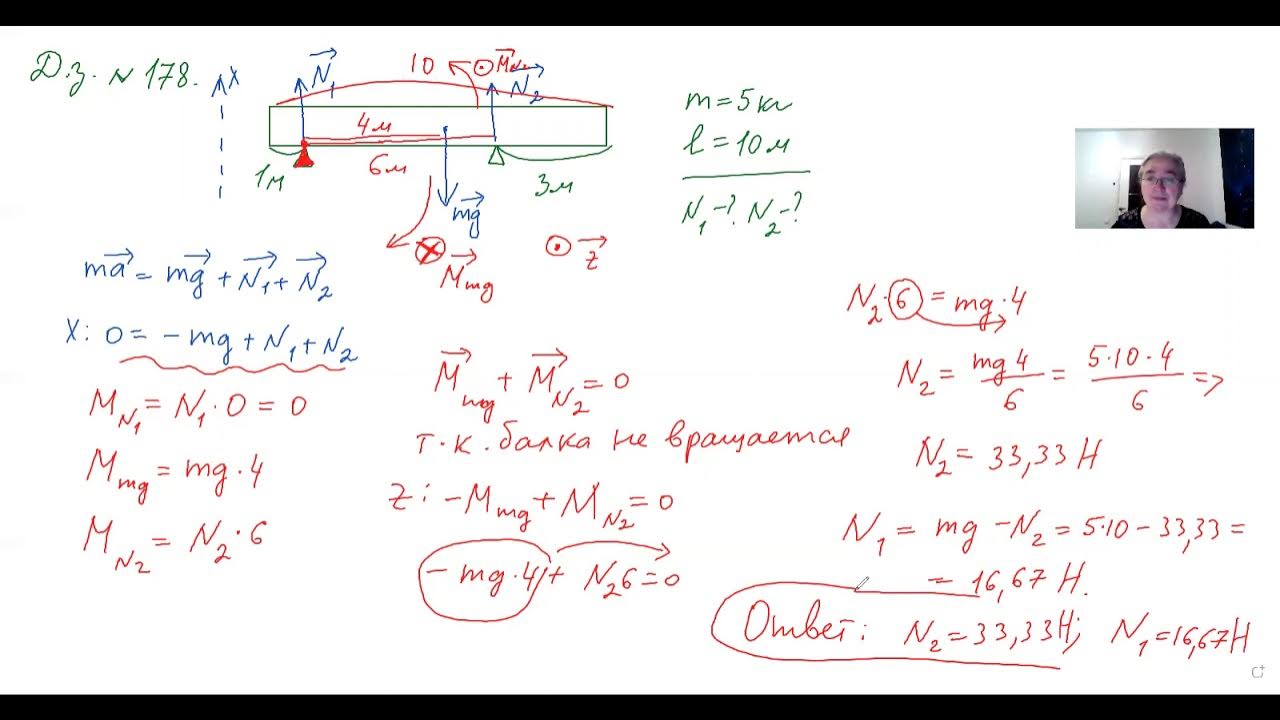 Д.з. N 178.
X
N₁
10
M_N₂
N₂
4м
6м
1м
3м
mg
M_mg
z
m = 5 кг
l = 10 м
N₁-? N₂-?
ma = mg + N₁ + N₂
X: 0 = - mg + N₁ + N₂
M_N₁ = N₁ · 0 = 0
M_mg = mg · 4
M_N₂ = N₂ · 6
M_mg + M_N₂ = 0
т.к. балка не вращается
z: - M_mg + M_N₂ = 0
- mg · 4 + N₂6 = 0
N₂ · 6 = mg · 4
N₂ = mg 4 / 6 = 5·10·4 / 6 =>
N₂ = 33,33 Н
N₁ = mg - N₂ = 5·10 - 33,33 =
= 16,67 Н.
Ответ: N₂ = 33,33 Н; N₁ = 16,67 Н